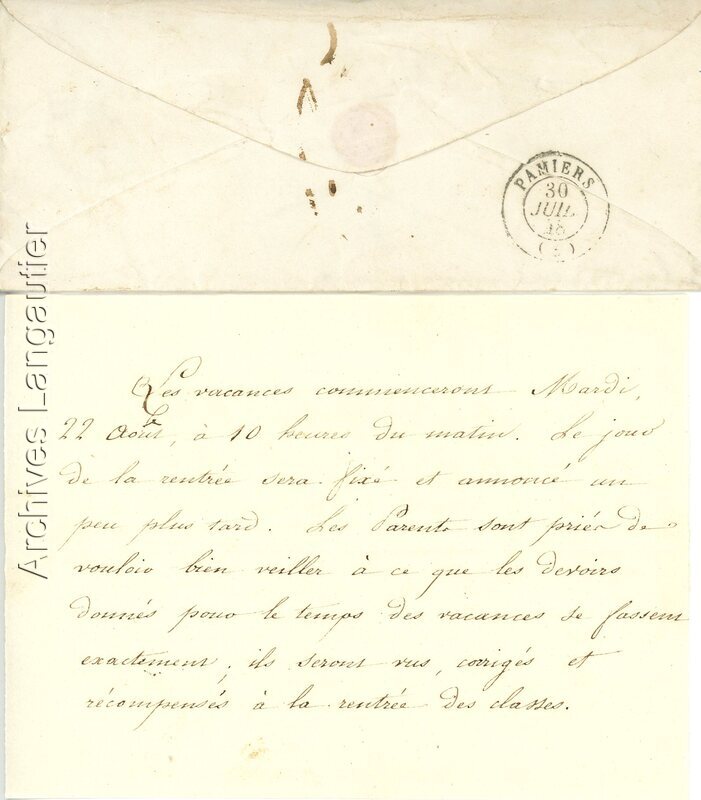 PAMIERS
30
JUIL.
48
Archives Langautier
Les vacances commenceront Mardi,
22 Août, à 10 heures du matin. Le jour
de la rentrée sera fixé et annoncé un
peu plus tard. Les Parents sont priés de
vouloir bien veiller à ce que les devoirs
donnés pour le temps des vacances se fassent
exactement; ils seront vus, corrigés et
récompensés à la rentrée des classes.